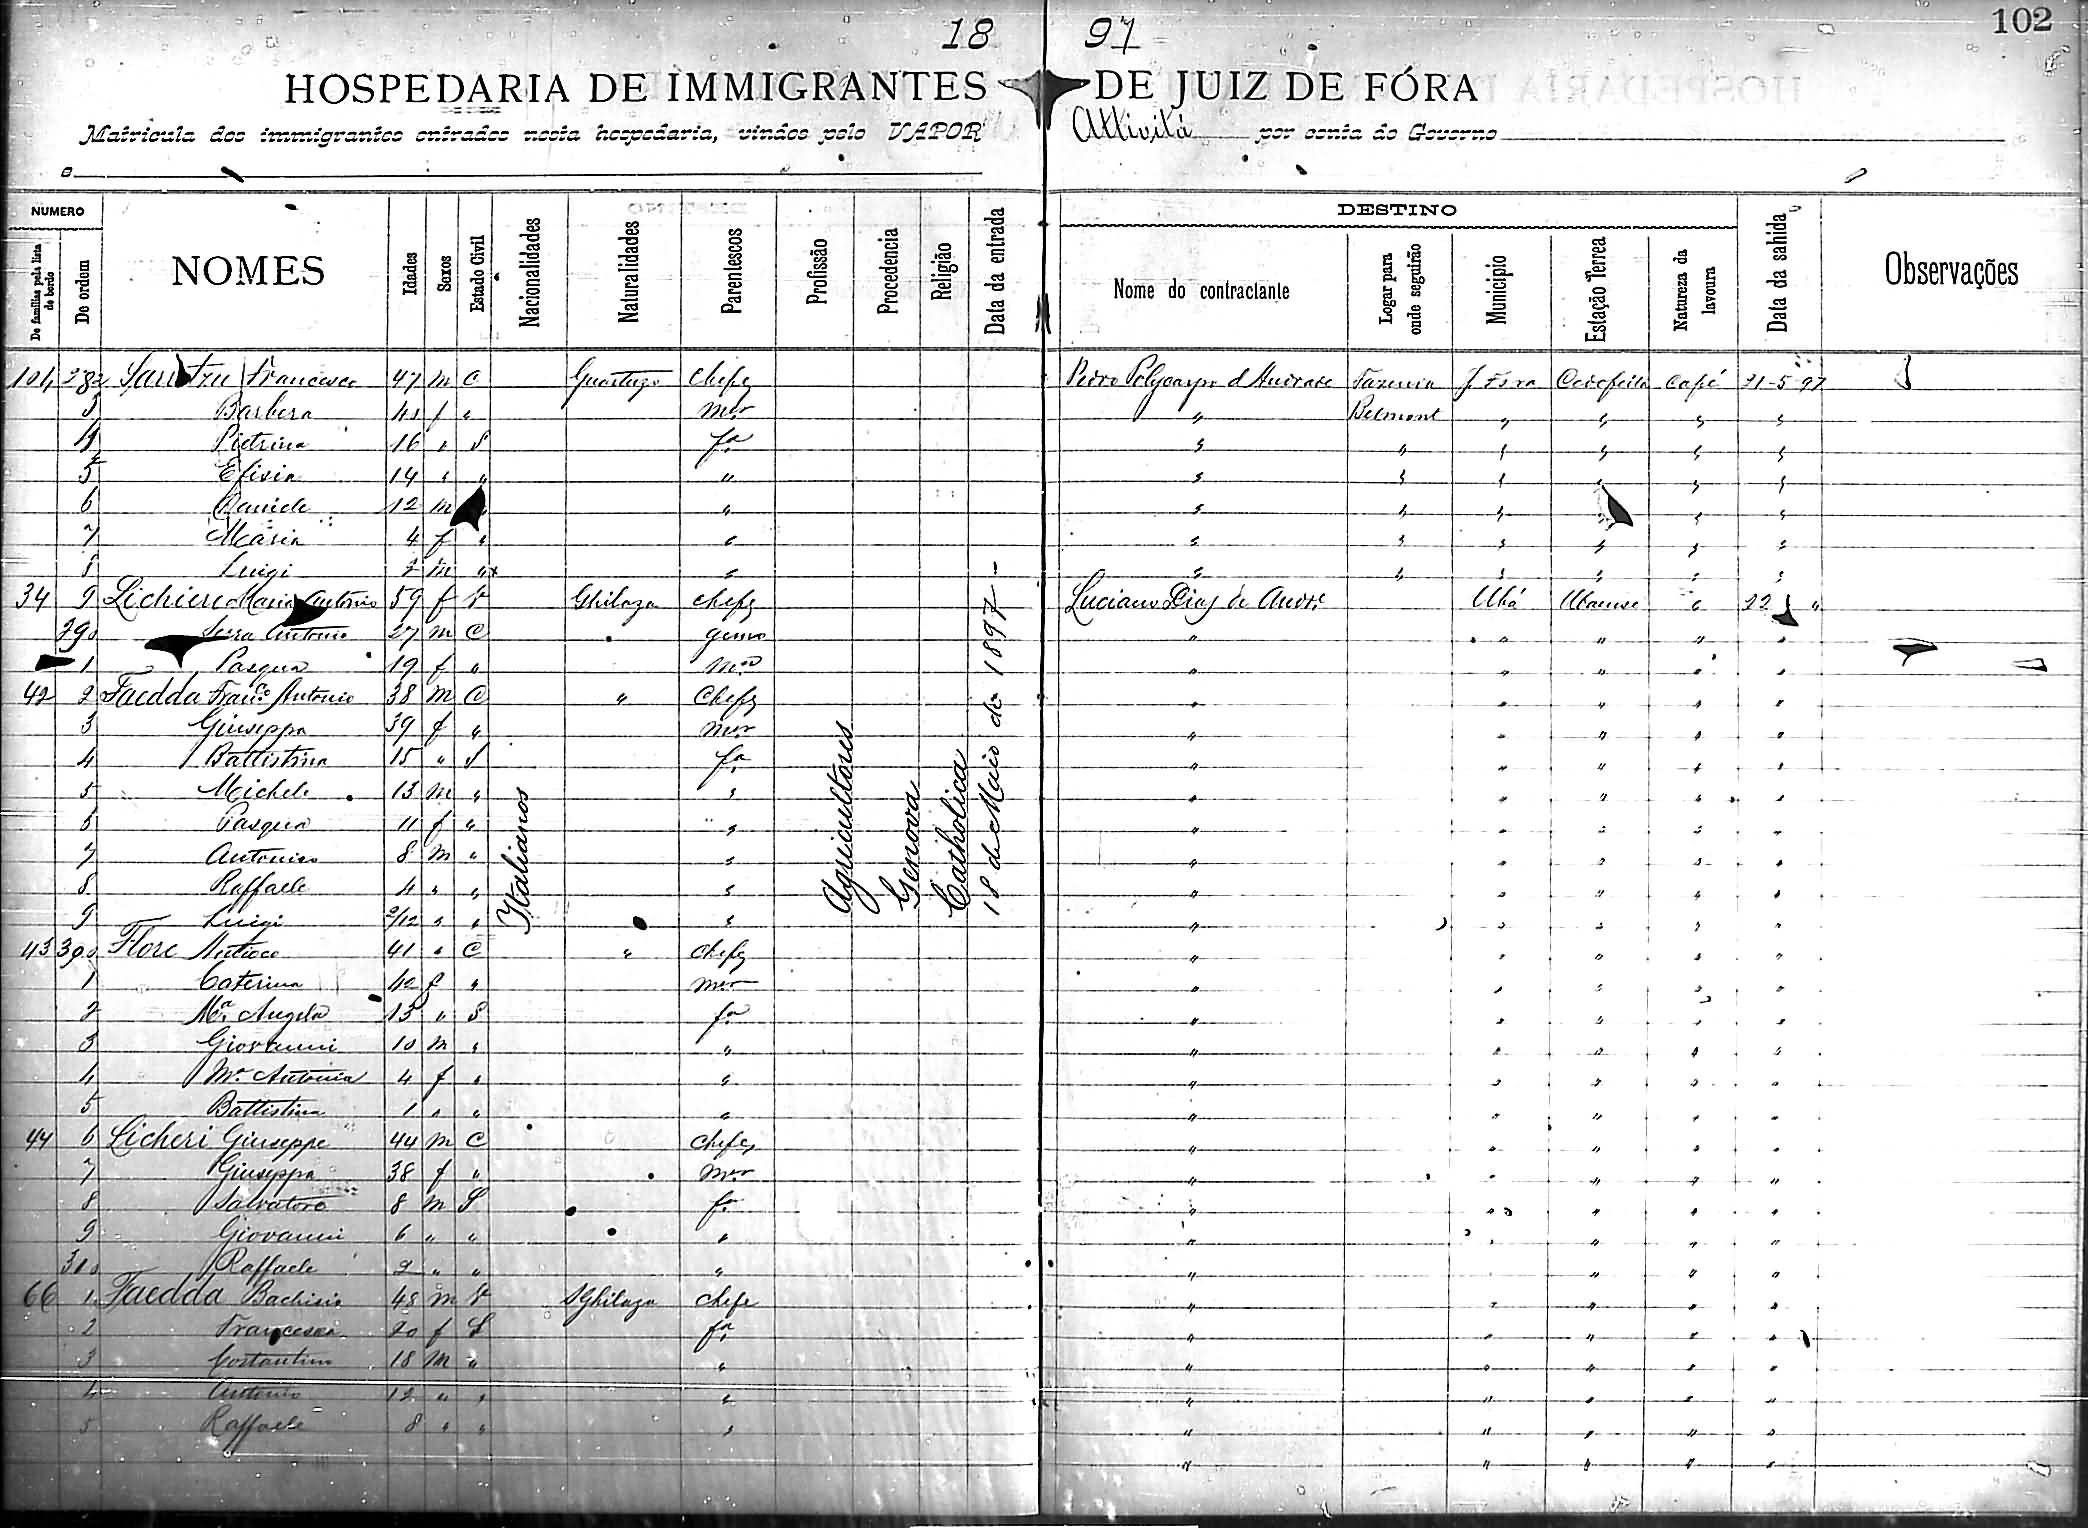 102
18 97
HOSPEDARIA DE IMMIGRANTES DE JUIZ DE FÓRA
Matricula dos immigrantes entrados nesta hospedaria, vindos pelo VAPOR Attivitá por conta do Governo
NUMERO
De familias pela lista de bordo
De ordem
NOMES
Idades
Sexos
Estado Civil
Nacionalidades
Naturalidades
Parentescos
Profissão
Procedencia
Religião
Data da entrada
DESTINO
Nome do contractante
Logar para onde seguirão
Municipio
Estação Ferrea
Natureza da lavoura
Data da sahida
Observações
Italianos
Agricultores
Genova
Catholica
18 de Maio de 1897
104 282 Francesco 47 m C Chefe Pedro Polycarpo d Andrade J Fora Cedofeita Café 21-5-97
3 Barbera f " mer " Belmont " " " "
4 Pietrina 16 " S fa " " " " " "
5 Efisia 14 " " " " " " " " "
6 Daniele 12 m " " " " " " " "
7 Maria 4 f " " " " " " " "
8 Luigi 2 m " " " " " " " "
34 9 Lichieri Maria Antonio 59 f V Ghilaza chefe Luciano Dias de Ubá Ubaense " 22 "
290 Serra Antonio 27 m C genro " " " " "
1 Pasqua 19 f " " " " " "
42 2 Faedda Franco Antonio 38 m C " Chefe " " " " "
3 Giuseppa 39 f " mer " " " " "
4 Battistina 15 " S fa " " " " "
5 Michele 13 m " " " " " " "
6 Pasqua 11 f " " " " " " "
7 Antonico 8 m " " " " " " "
8 Raffaele 4 " " " " " " " "
9 Luigi 2/12 " " " " " " " "
43 300 Flore Antioco 41 " C " chefe " " " " "
1 Caterina 42 f " mer " " " " "
2 Ma Angela 13 " S fa " " " " "
3 Giovanni 10 m " " " " " " "
4 Ma Antonia 4 f " " " " " " "
5 Battistina 1 " " " " " " " "
44 6 Licheri Giuseppe 44 m C chefe " " " " "
7 Giuseppa 38 f " mer " " " " "
8 Salvatore 8 m S fo " " " " "
9 Giovanni 6 " " " " " " " "
310 Raffaele 2 " " " " " " "
66 1 Faedda Bachisio 48 m V Ghilaza chefe " " " " "
2 Francesca 20 f S fa " " " " "
3 Costantino 18 m " " " " " " "
4 Antonio 12 " " " " " " " "
5 Raffaele 8 " " " " " " " "
" " " " "